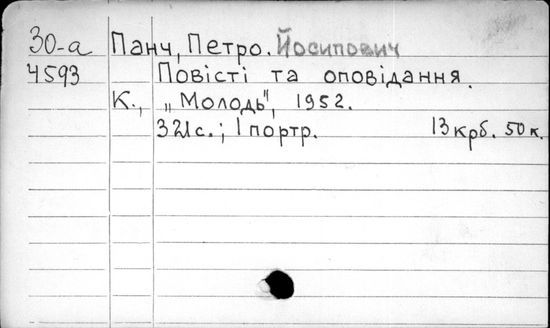 30-а Панч, Петро. Йосипович
4593 Повісті та оповідання.
К., „Молодь", 1952.
321с.; 1 портр. 13 крб. 50 к.